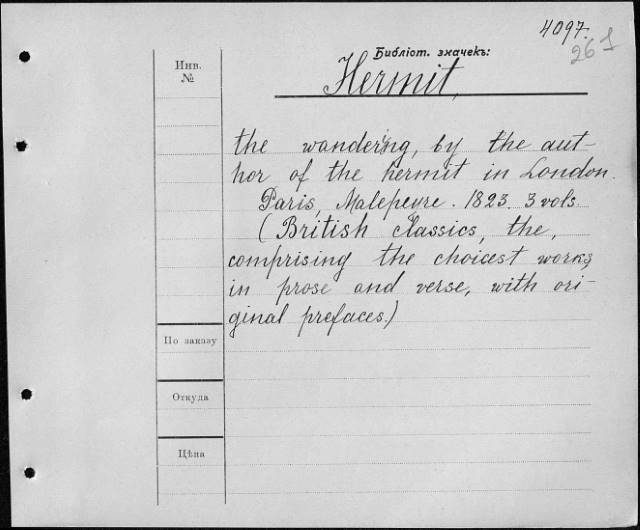 4097.
261
Библіот. значекъ:
Инв. №
Hermit,
the wandering, by the aut-
hor of the hermit in London.
Paris, Malepeyre. 1823. 3 vols.
(British classics, the,
comprising the choicest works
in prose and verse, with ori-
ginal prefaces.)
По заказу
Откуда
Цѣна